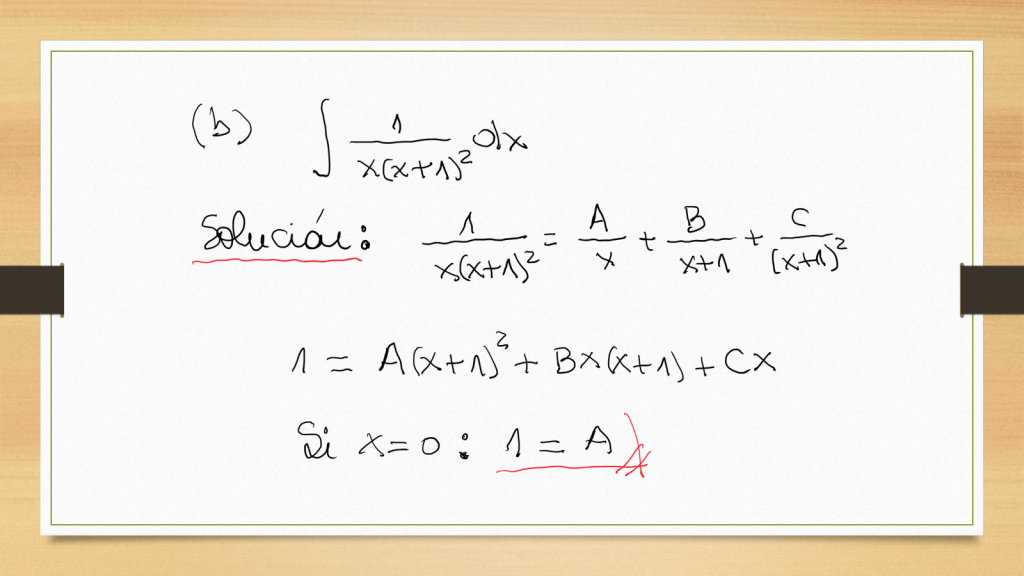 (b) ∫ 1/(x(x+1)²) dx
Solución: 1/(x(x+1)²) = A/x + B/(x+1) + C/(x+1)²
1 = A(x+1)² + Bx(x+1) + Cx
Si x=0 : 1 = A